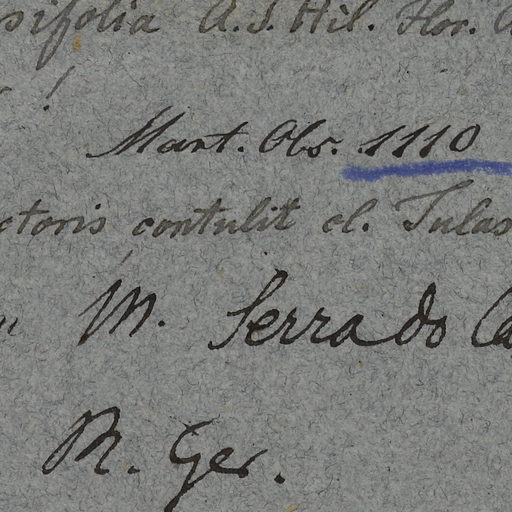 sifolia A. S. Hil. Flor.
!
Mart. Obs. 1110
ctoris contulit cl. Tulas
M. Serra do Ca
M. Ger.